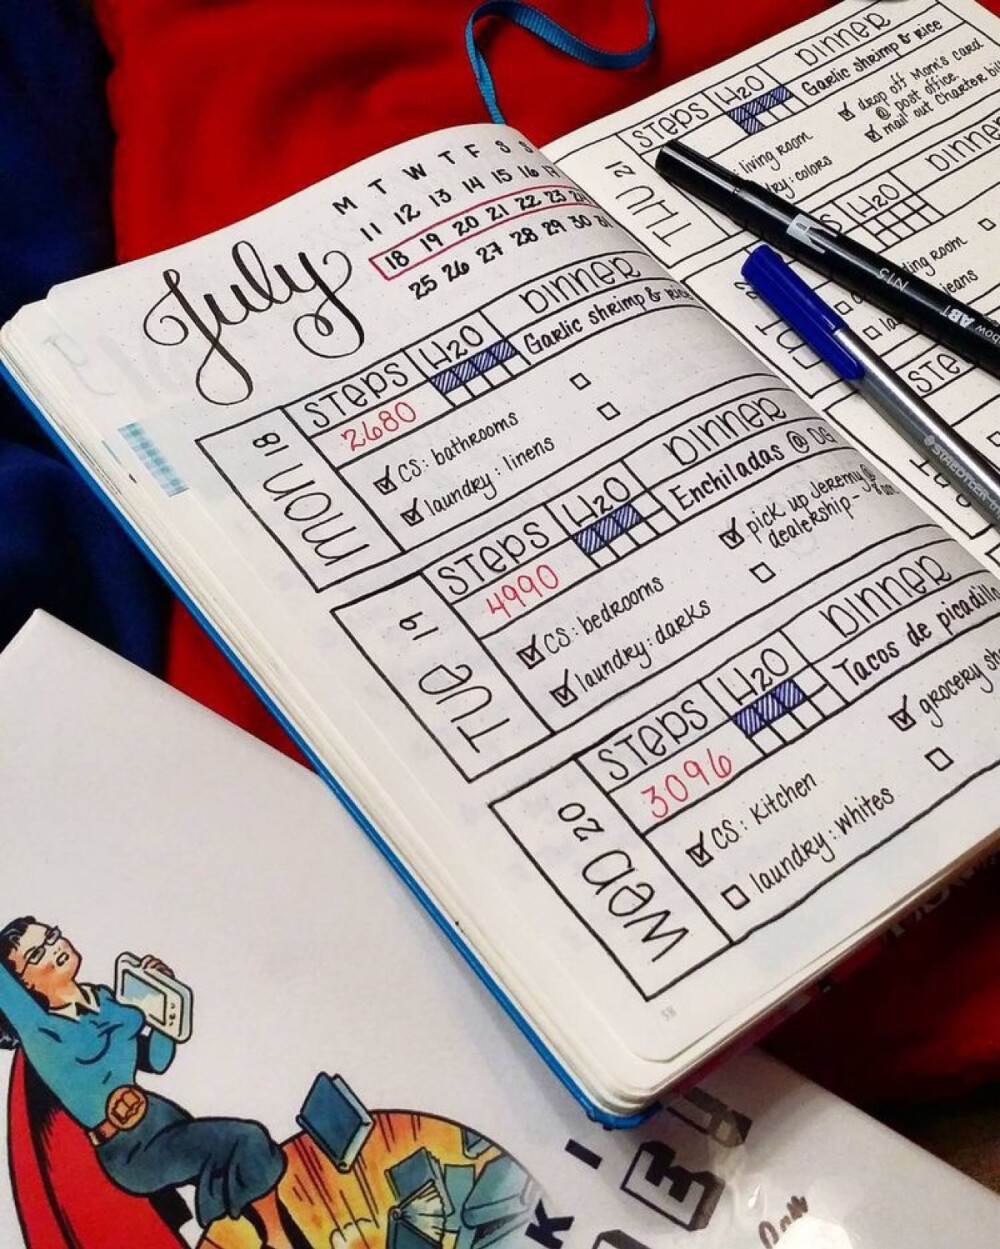 July
M T W T F S S
11 12 13 14 15 16 17
18 19 20 21 22 23 24
25 26 27 28 29 30 31
MON 18
STEPS H2O DINNER
2680 Garlic shrimp & rice
CS: bathrooms
laundry: linens
TUE 19
STEPS H2O DINNER
4990 Enchiladas @ DG
CS: bedrooms
pick up Jeremy @
dealership-
laundry: darks
WED 20
STEPS H2O DINNER
3096 Tacos de picadillo
CS: Kitchen
grocery
laundry: whites
58
THU 21
STEPS H2O DINNER
Garlic shrimp & rice
living room
drop off Mom's card
@ post office.
colors
mail out Charter
H2O DINNER
room
jeans
STE
N15
AB
STAEDTLER